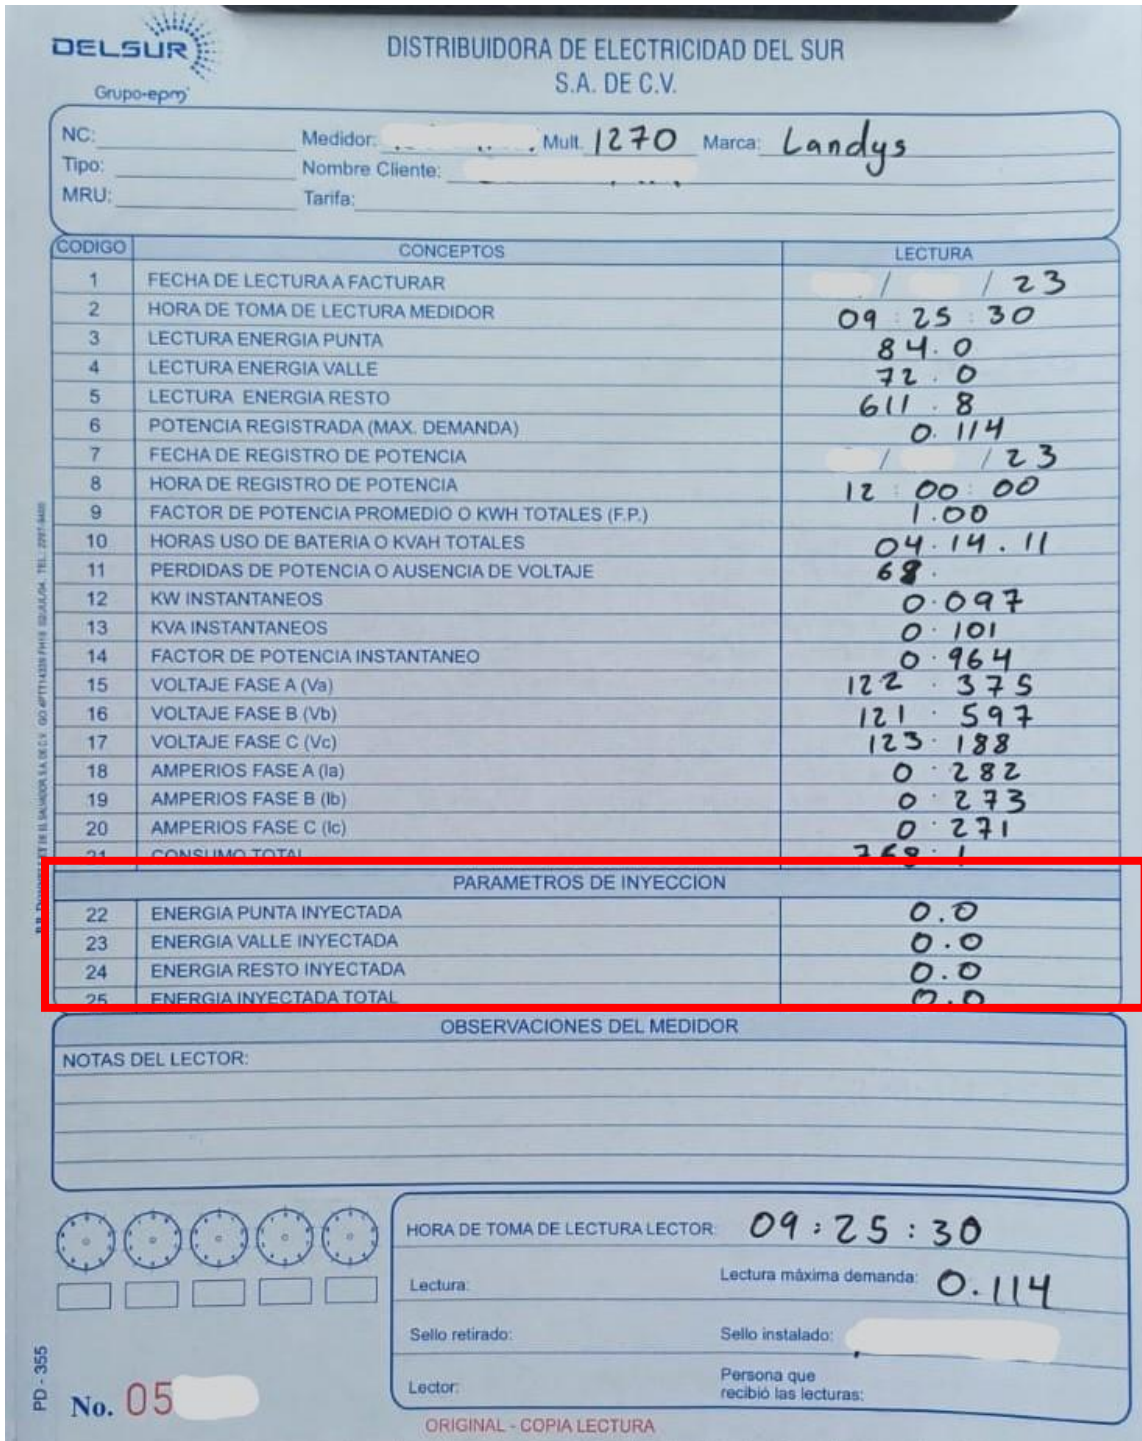 DELSUR
Grupo·epm
DISTRIBUIDORA DE ELECTRICIDAD DEL SUR
S.A. DE C.V.
NC: Medidor: Mult. 1270 Marca: Landys
Tipo: Nombre Cliente:
MRU: Tarifa:
CODIGO CONCEPTOS LECTURA
1 FECHA DE LECTURA A FACTURAR / / 23
2 HORA DE TOMA DE LECTURA MEDIDOR 09 : 25 : 30
3 LECTURA ENERGIA PUNTA 84.0
4 LECTURA ENERGIA VALLE 72.0
5 LECTURA ENERGIA RESTO 611.8
6 POTENCIA REGISTRADA (MAX. DEMANDA) 0.114
7 FECHA DE REGISTRO DE POTENCIA / / 23
8 HORA DE REGISTRO DE POTENCIA 12 : 00 : 00
9 FACTOR DE POTENCIA PROMEDIO O KWH TOTALES (F.P.) 1.00
10 HORAS USO DE BATERIA O KVAH TOTALES 04.14.11
11 PERDIDAS DE POTENCIA O AUSENCIA DE VOLTAJE 68.
12 KW INSTANTANEOS 0.097
13 KVA INSTANTANEOS 0.101
14 FACTOR DE POTENCIA INSTANTANEO 0.964
15 VOLTAJE FASE A (Va) 122.375
16 VOLTAJE FASE B (Vb) 121.597
17 VOLTAJE FASE C (Vc) 123.188
18 AMPERIOS FASE A (Ia) 0.282
19 AMPERIOS FASE B (Ib) 0.273
20 AMPERIOS FASE C (Ic) 0.271
21 CONSUMO TOTAL 768.1
PARAMETROS DE INYECCION
22 ENERGIA PUNTA INYECTADA 0.0
23 ENERGIA VALLE INYECTADA 0.0
24 ENERGIA RESTO INYECTADA 0.0
25 ENERGIA INYECTADA TOTAL 0.0
OBSERVACIONES DEL MEDIDOR
NOTAS DEL LECTOR:
HORA DE TOMA DE LECTURA LECTOR: 09:25:30
Lectura: Lectura máxima demanda: 0.114
Sello retirado: Sello instalado:
Lector: Persona que
recibió las lecturas:
PD - 355
No. 05
ORIGINAL - COPIA LECTURA